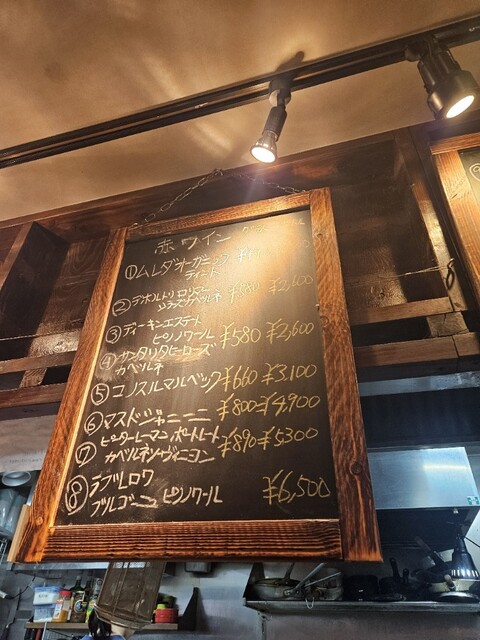 赤ワイン
①ムレダオーガニック
ティント
②デボルトリ ロリマー
シラーズカベルネ ¥580 ¥2,600
③ディーキンエステート
ピノノワール ¥580 ¥2,600
④サンタリタヒーローズ
カベルネ
⑤コノスルマルベック ¥660 ¥3,100
⑥マスドジャニーニ ¥800 ¥4,900
⑦ピーターレーマン ポートレート
カベルネソーヴィニヨン ¥890 ¥5300
⑧ラブレロワ
ブルゴーニュ ピノノワール ¥6,500